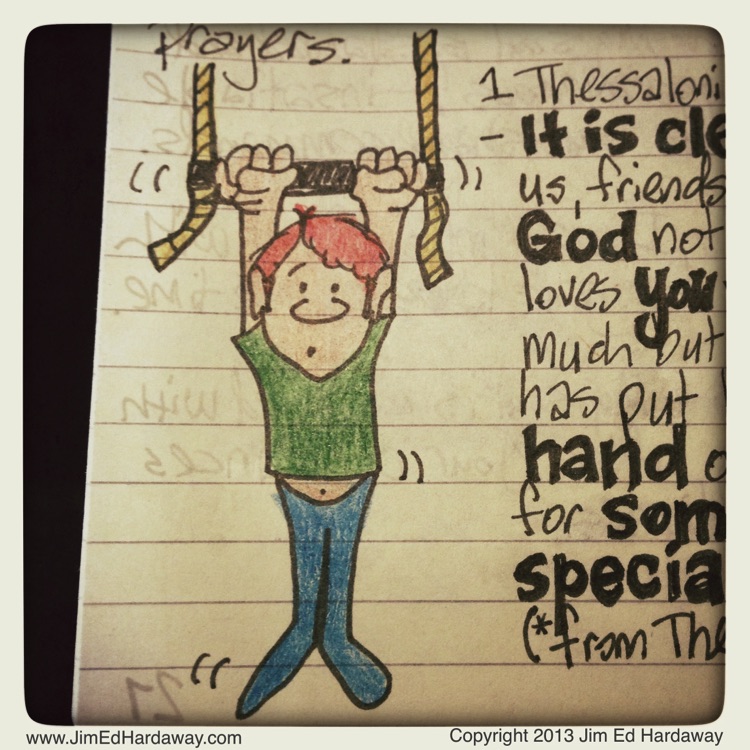 Prayers.
1 Thessaloni
- It is cle
us, friends
God not
loves you
much but
has put
hand o
for som
specia
(*from The
www.JimEdHardaway.com
Copyright 2013 Jim Ed Hardaway